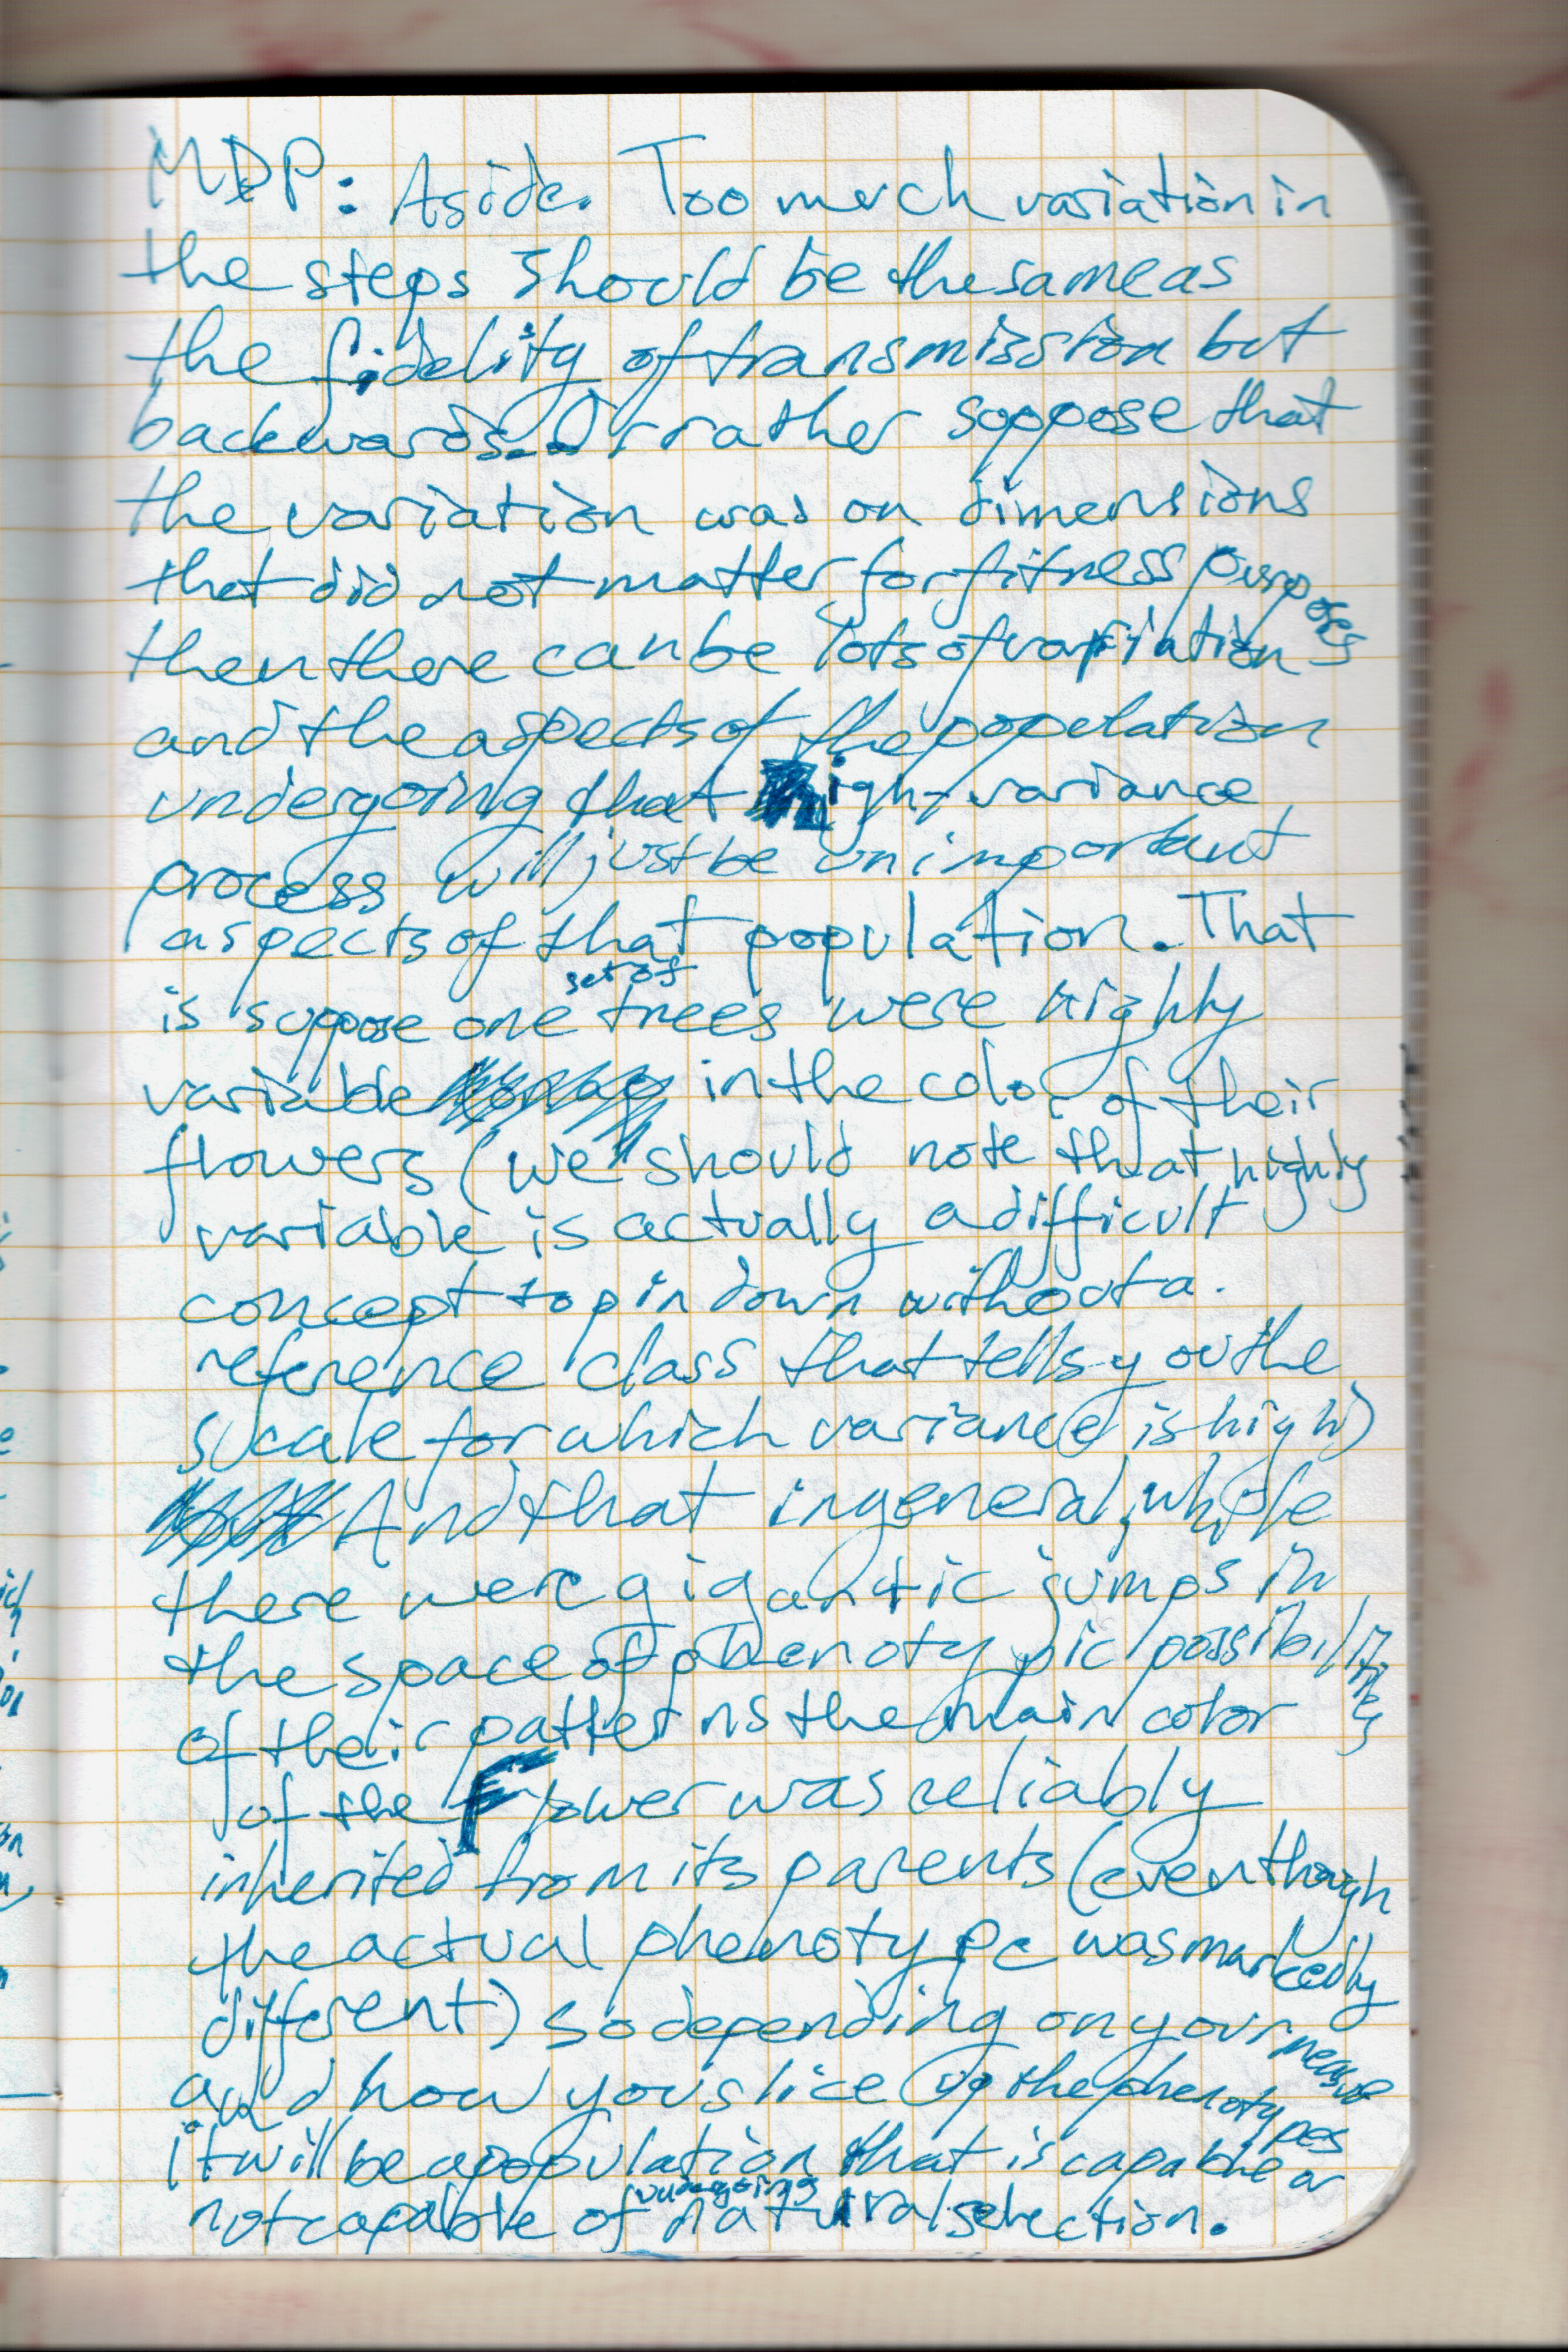 MDP: Aside. Too much variation in
the steps should be the same as
the fidelity of transmission but
backwards. Or rather suppose that
the variation was on dimensions
that did not matter for fitness purposes
then there can be lots of variation
and the aspects of the population
undergoing that high-variance
process will just be unimportant
aspects of that population. That
is suppose one set of trees were highly
variable in the color of their
flowers (we should note that highly
variable is actually a difficult
concept to pin down without a
reference class that tells you the
scale for which variance is high)
And that in general, while
there were gigantic jumps in
the space of phenotypic possibilities
of their patterns the main color
of the Flower was reliably
inherited from its parents (even though
the actual phenotype was markedly
different) so depending on your measure
and how you slice up the phenotypes
it will be a population that is capable or
not capable of undergoing natural selection.